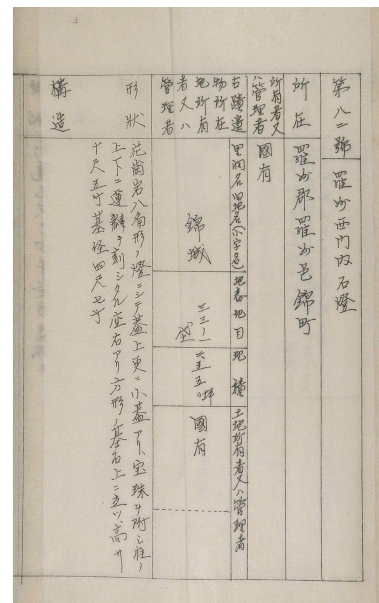 第八二號 羅州西門內石燈
所在 羅州郡羅州邑錦町
所有者又ハ管理者 國有
古蹟遺物所在地所有者又ハ管理者
里洞名(舊地名小字名) 地番 地目 地積 土地所有者又ハ管理者
錦城 三三ノ一 垈 坪 國有
形狀
構造
花崗岩八角形ノ燈ニシテ蓋上更ニ小蓋アリ、宝珠ヲ附シ柱ノ
上下ニ蓮瓣ヲ刻シタル座石アリ方形ノ基石上ニ立ツ、高サ
十尺五寸基径四尺七寸